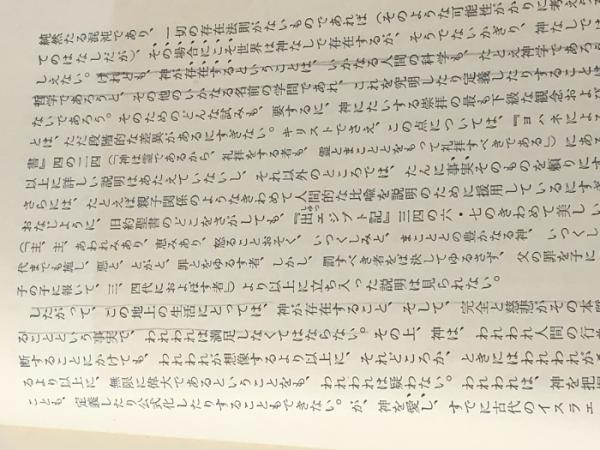 純然たる混沌であり、一切の存在法則がないものであれば（そのような可能性がかりに考えう
てのはなしだが）、その場合にこそ世界は神なしで存在するが、そうでないかぎり、神なしでは
しえない。けれども、神が存在するということは、いかなる人間の科学も、たとえ神学であろう
哲学であろうと、その他のいかなる名前の学問であれ、これを究明したり定義したりすることは
ないであろう。そのためのどんな試みも、要するに、神にたいする崇拝の最も下級な観念および
とは、ただ段階的な差異があるにすぎない。キリストでさえ、この点については、『ヨハネによ
書』四の二四（「神は霊であるから、礼拝をする者も、霊とまこととをもって礼拝すべきである」）にあ
以上に詳しい説明はあたえていないし、それ以外のところでは、たんに事実そのものを頼りにす
さらには、たとえば親子関係のようなきわめて人間的な比喩を説明のために援用しているにすぎ
おなじように、旧約聖書のどこをさがしても、『出エジプト記』三四の六・七のきわめて美しい
（「主、主、あわれみあり、恵みあり、怒ることおそく、いつくしみと、まこととの豊かなる神、いつくし
代までも施し、悪と、とがと、罪とをゆるす者、しかし、罰すべき者をば決してゆるさず、父の罪を子に
子の子に報いて、三、四代におよぼす者」）より以上に立ち入った説明は見られない。
したがって、この地上の生活にとっては、神が存在すること、そして、完全と慈悲がその本
ることという事実で、われわれは満足しなくてはならない。その上、神は、われわれ人間の行
断することにかけても、われわれが想像するより以上に、それどころか、ときにはわれわれが
るより以上に、無限に偉大であるということをも、われわれは疑わない。われわれは、神を把
ことも、定義したり公式化したりすることもできない。が、神を愛し、すでに古代のイスラエ